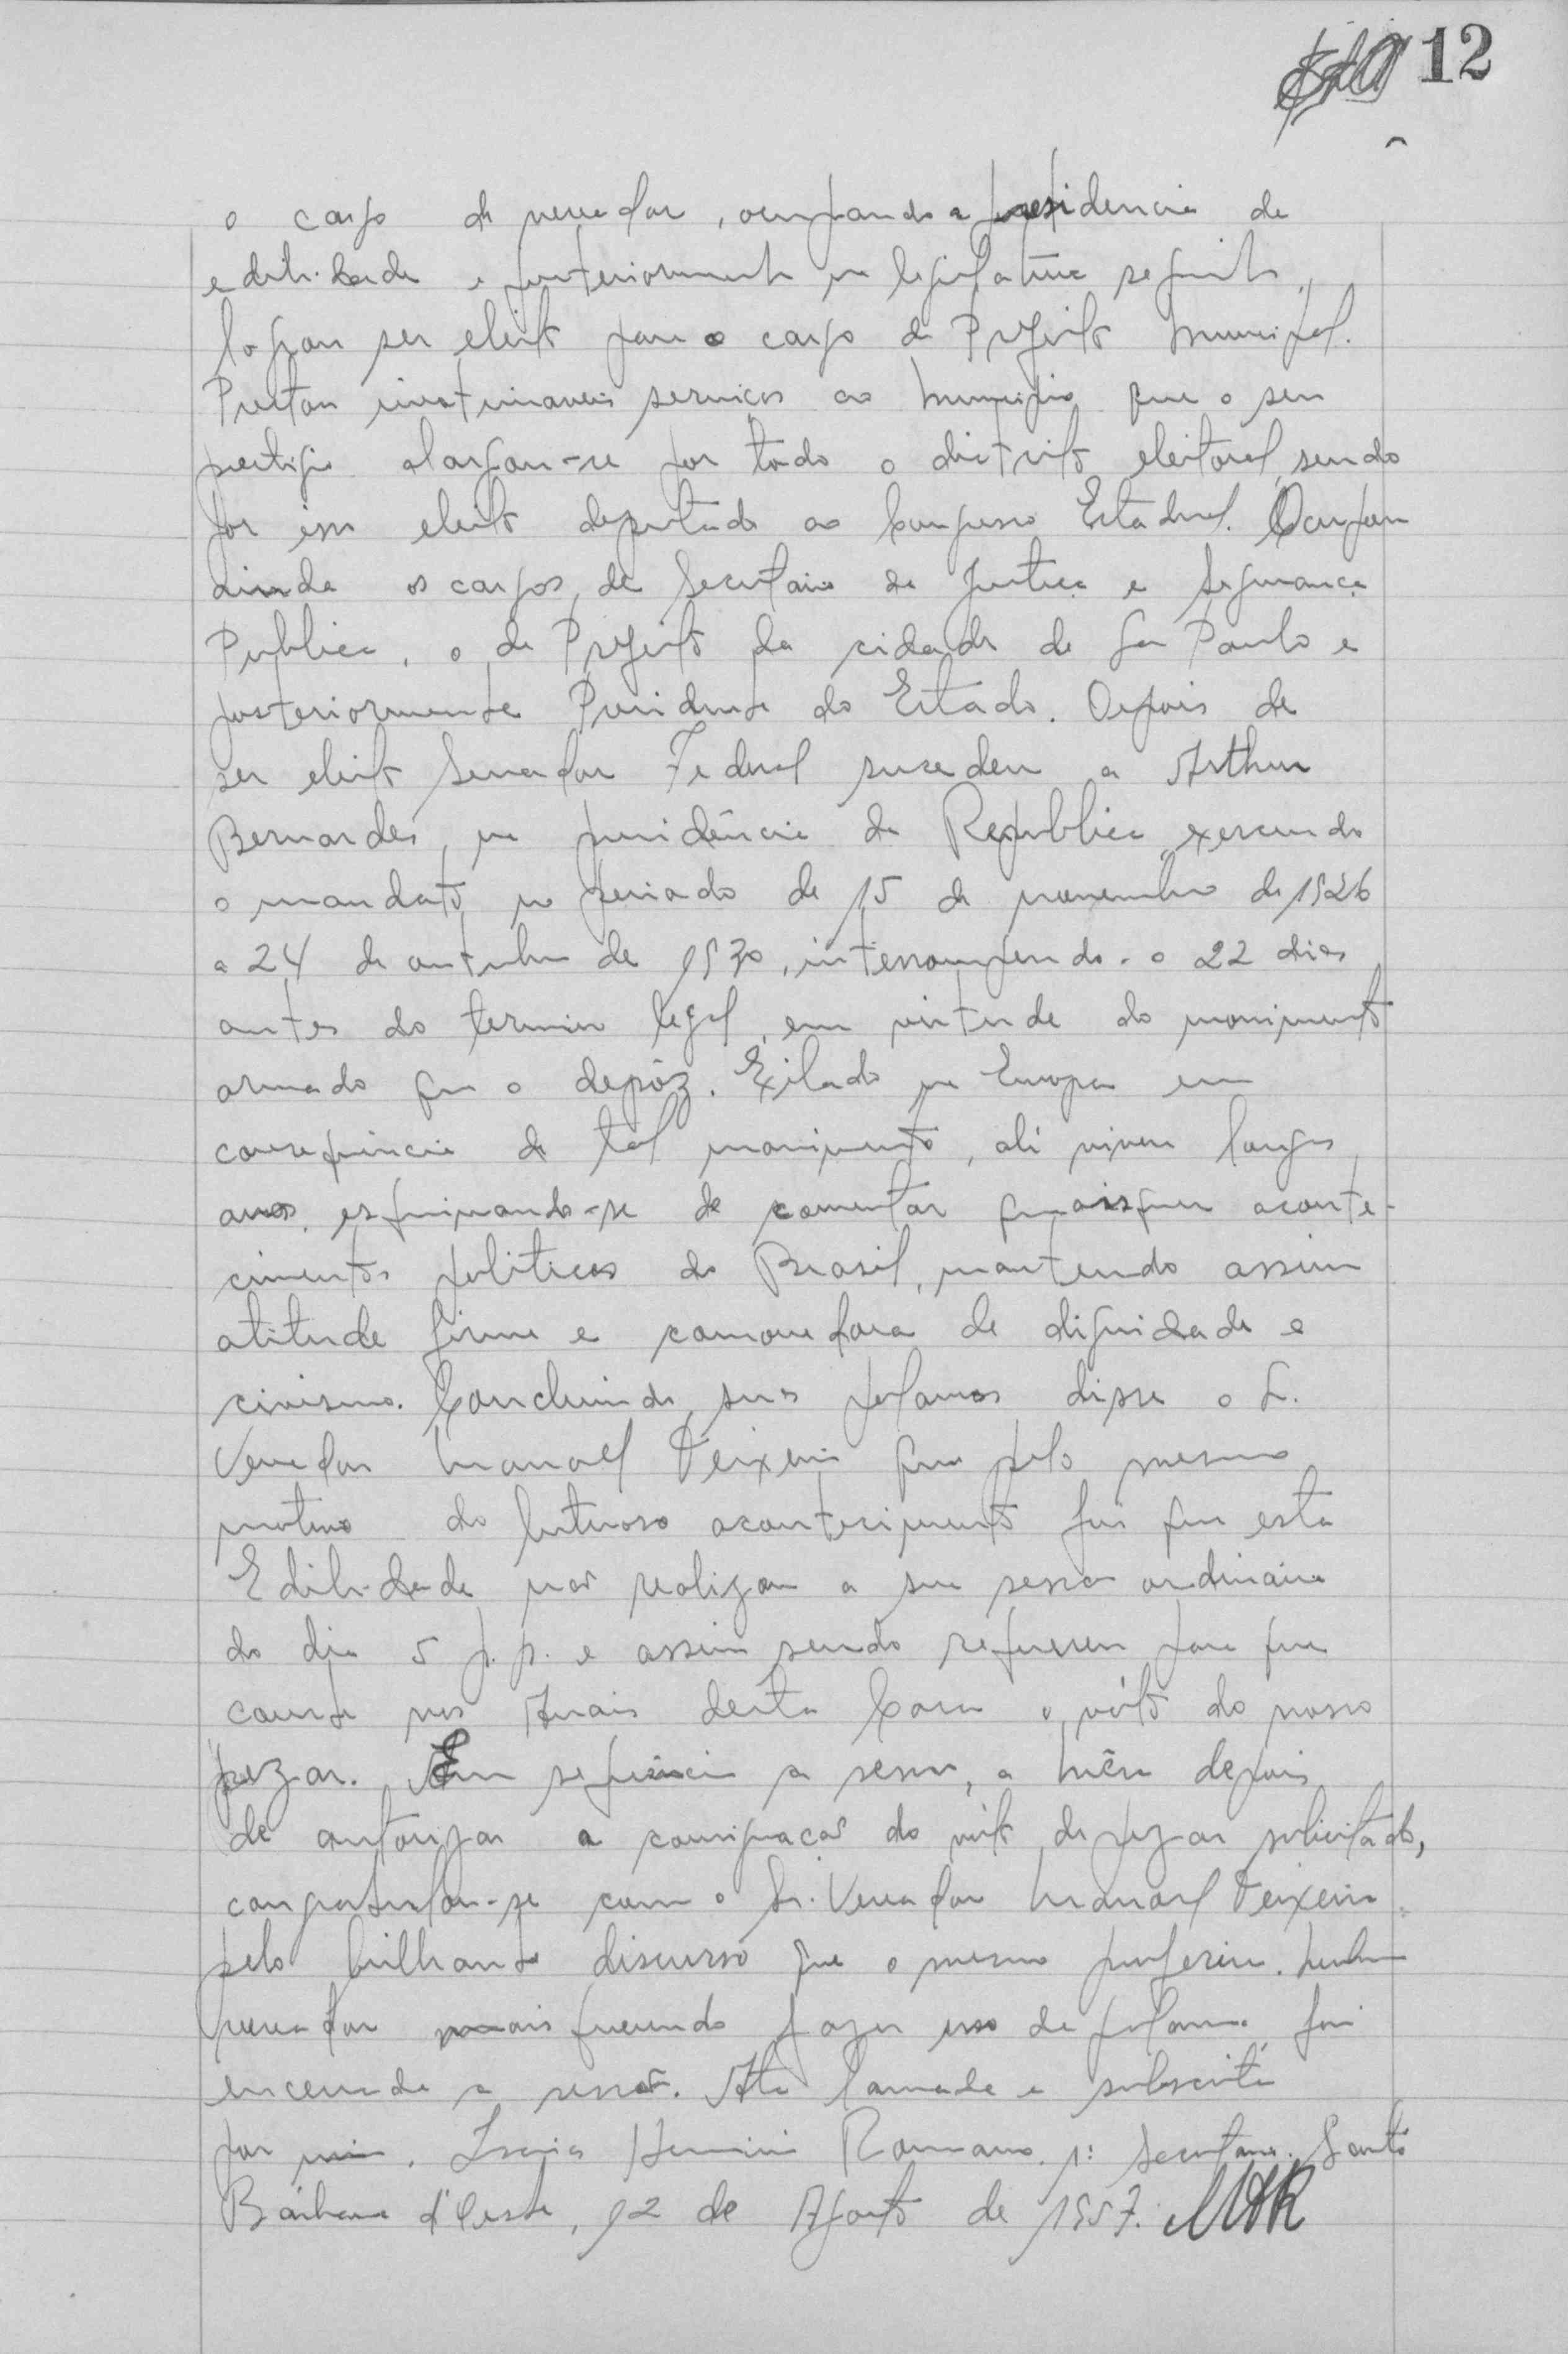 12
o cargo de vereador, ocupando a presidencia da
edilidade e posteriormente na legislatura seguinte,
logrou ser eleito para o cargo de Prefeito Municipal.
Prestou inestimaveis serviços ao municipio que o seu
prestigio alargou-se por todo o distrito eleitoral, sendo
por isso eleito deputado ao Congresso Estadual. Ocupou
ainda os cargos, de Secretario da Justiça e Segurança
Publica, o de Prefeito da cidade de São Paulo e
posteriormente Presidente do Estado. Depois de
ser eleito Senador Federal sucedeu a Arthur
Bernardes, na presidência da Republica, exercendo
o mandato no periodo de 15 de novembro de 1926
a 24 de outubro de 1930, interrompendo-o 22 dias
antes do termino legal, em virtude do movimento
armado que o depôz. Exilado na Europa em
consequencia de tal movimento, ali viveu longos
anos, esquivando-se de comentar quaisquer aconte-
cimentos politicos do Brasil, mantendo assim
atitude firme e comovedora de dignidade e
civismo. Concluindo, suas palavras disse o Sr.
Vereador Manoel Teixeira que pelo mesmo
motivo do lutuoso acontecimento foi que esta
Edilidade não realizou a sua sessão ordinaria
do dia 5 p.p. e assim sendo requereu para que
conste nos Anais desta Casa o vóto do nosso
pezar. Em sequencia a sessão, a Mêsa depois
de autorizar a consignação do vóto de pezar solicitado,
congratulou-se com o Sr. Vereador Manoel Teixeira
pelo brilhante discurso que o mesmo proferiu. Nenhum
vereador mais querendo fazer uso da palavra foi
encerrada a sessão. Ata lavrada e subscrita
por mim, Romano, 1º Secretario. Santa
Bárbara d'Oeste, 12 de Agosto de 1957.